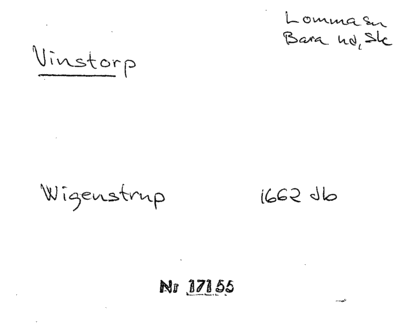 Lomma sn
Bara hd, Sk
Vinstorp
Wigenstrup 1662 db
Nr 17155